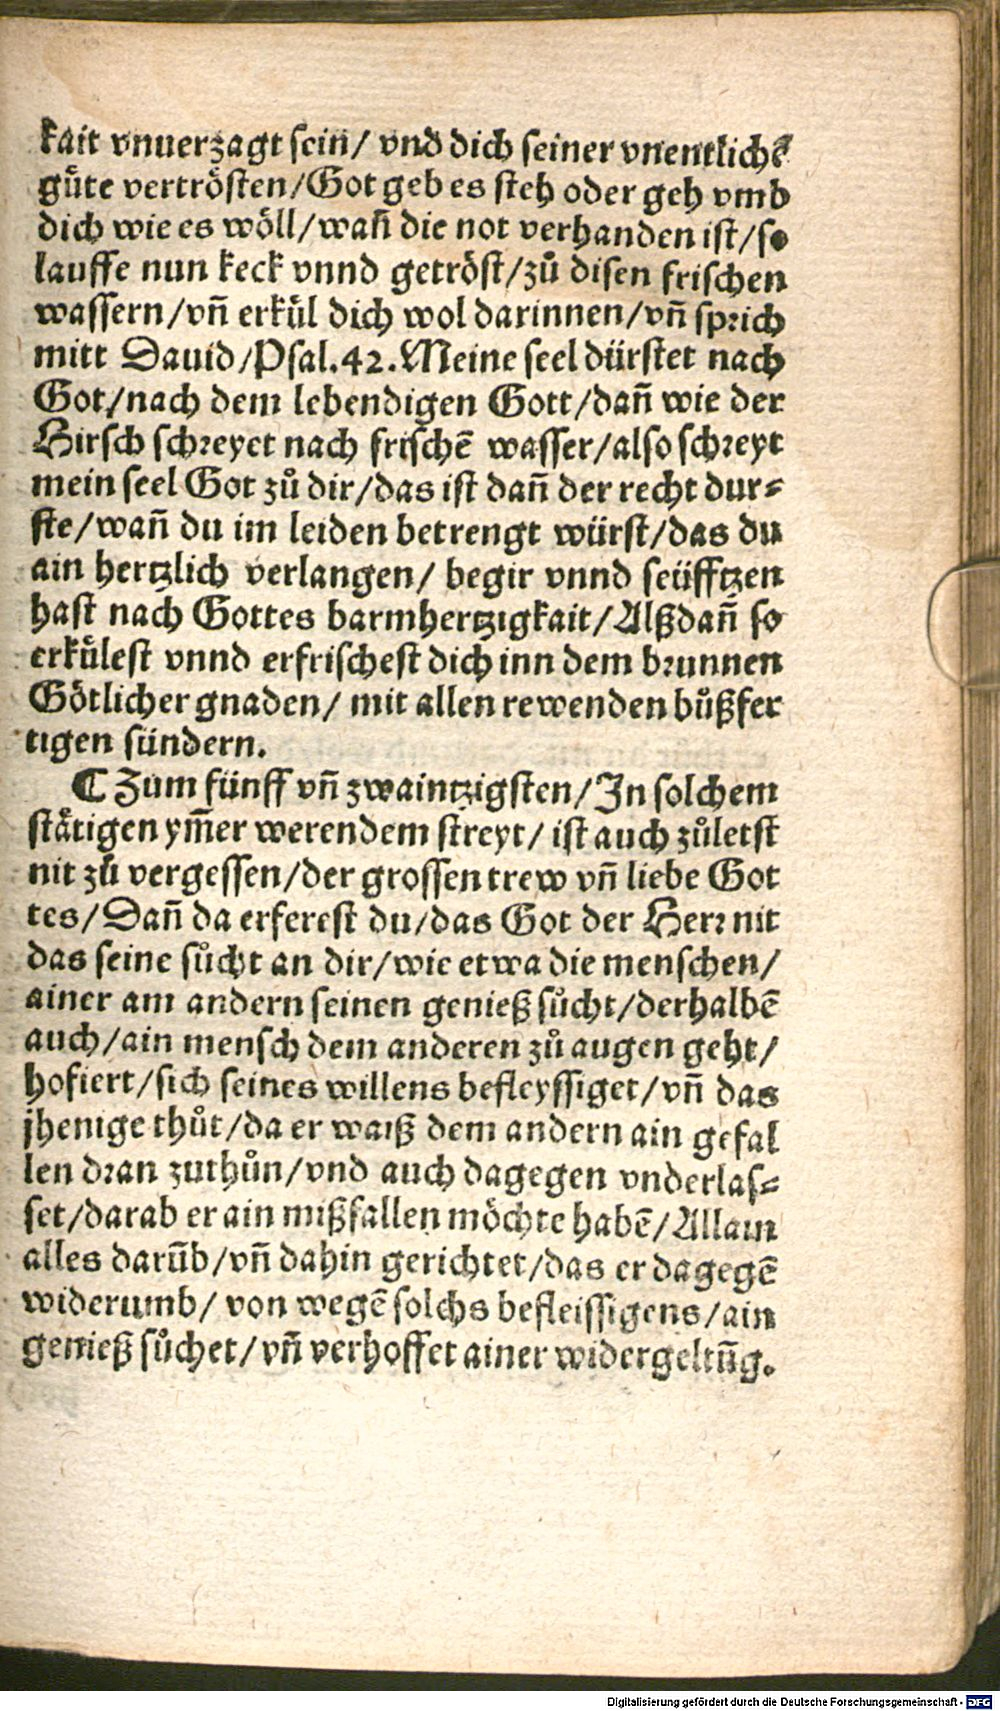 kait vnuerzagt sein/ vnd dich seiner vnentlichẽ
gůte vertrösten/Got geb es steh oder geh vmb
dich wie es wöll/wañ die not verhanden ist/so
lauffe nun keck vnnd getröst/zů disen frischen
wassern/vñ erkůl dich wol darinnen/vñ sprich
mitt Dauid/Psal.42.Meine seel dürstet nach
Got/nach dem lebendigen Gott/dañ wie der
Hirsch schreyet nach frischẽ wasser/also schreyt
mein seel Got zů dir/das ist dañ der recht dur⸗
ste/wañ du im leiden betrengt würst/das du
ain hertzlich verlangen/ begir vnnd seüfftzen
hast nach Gottes barmhertzigkait/Alßdañ so
erkůlest vnnd erfrischest dich inn dem brunnen
Götlicher gnaden/ mit allen rewenden bůßfer
tigen sündern.
⸿ Zum fünff vñ zwaintzigsten/In solchem
stätigen ym̃er werendem streyt/ ist auch zůletst
nit zů vergessen/der grossen trew vñ liebe Got
tes/Dañ da erferest du/das Got der Herr nit
das seine sůcht an dir/wie etwa die menschen/
ainer am andern seinen genieß sůcht/derhalbẽ
auch/ain mensch dem anderen zů augen geht/
hofiert/sich seines willens befleyssiget/vñ das
jhenige thůt/da er waiß dem andern ain gefal
len dran zuthůn/vnd auch dagegen vnderlas⸗
set/darab er ain mißfallen möchte habẽ/Allain
alles darũb/vñ dahin gerichtet/das er dagegẽ
widerumb/ von wegẽ solchs befleissigens/ain
genieß sůchet/vñ verhoffet ainer widergeltũg.
Digitalisierung gefördert durch die Deutsche Forschungsgemeinschaft - DFG